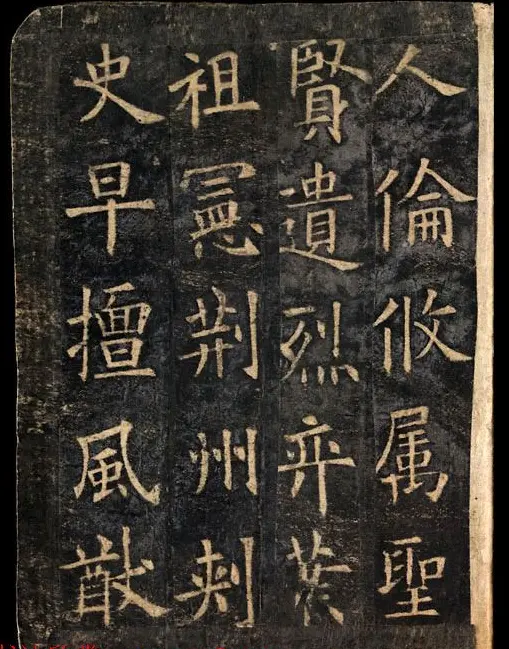 人倫攸属聖
賢遺烈弈葉
祖憲荊州刾
史早擅風猷